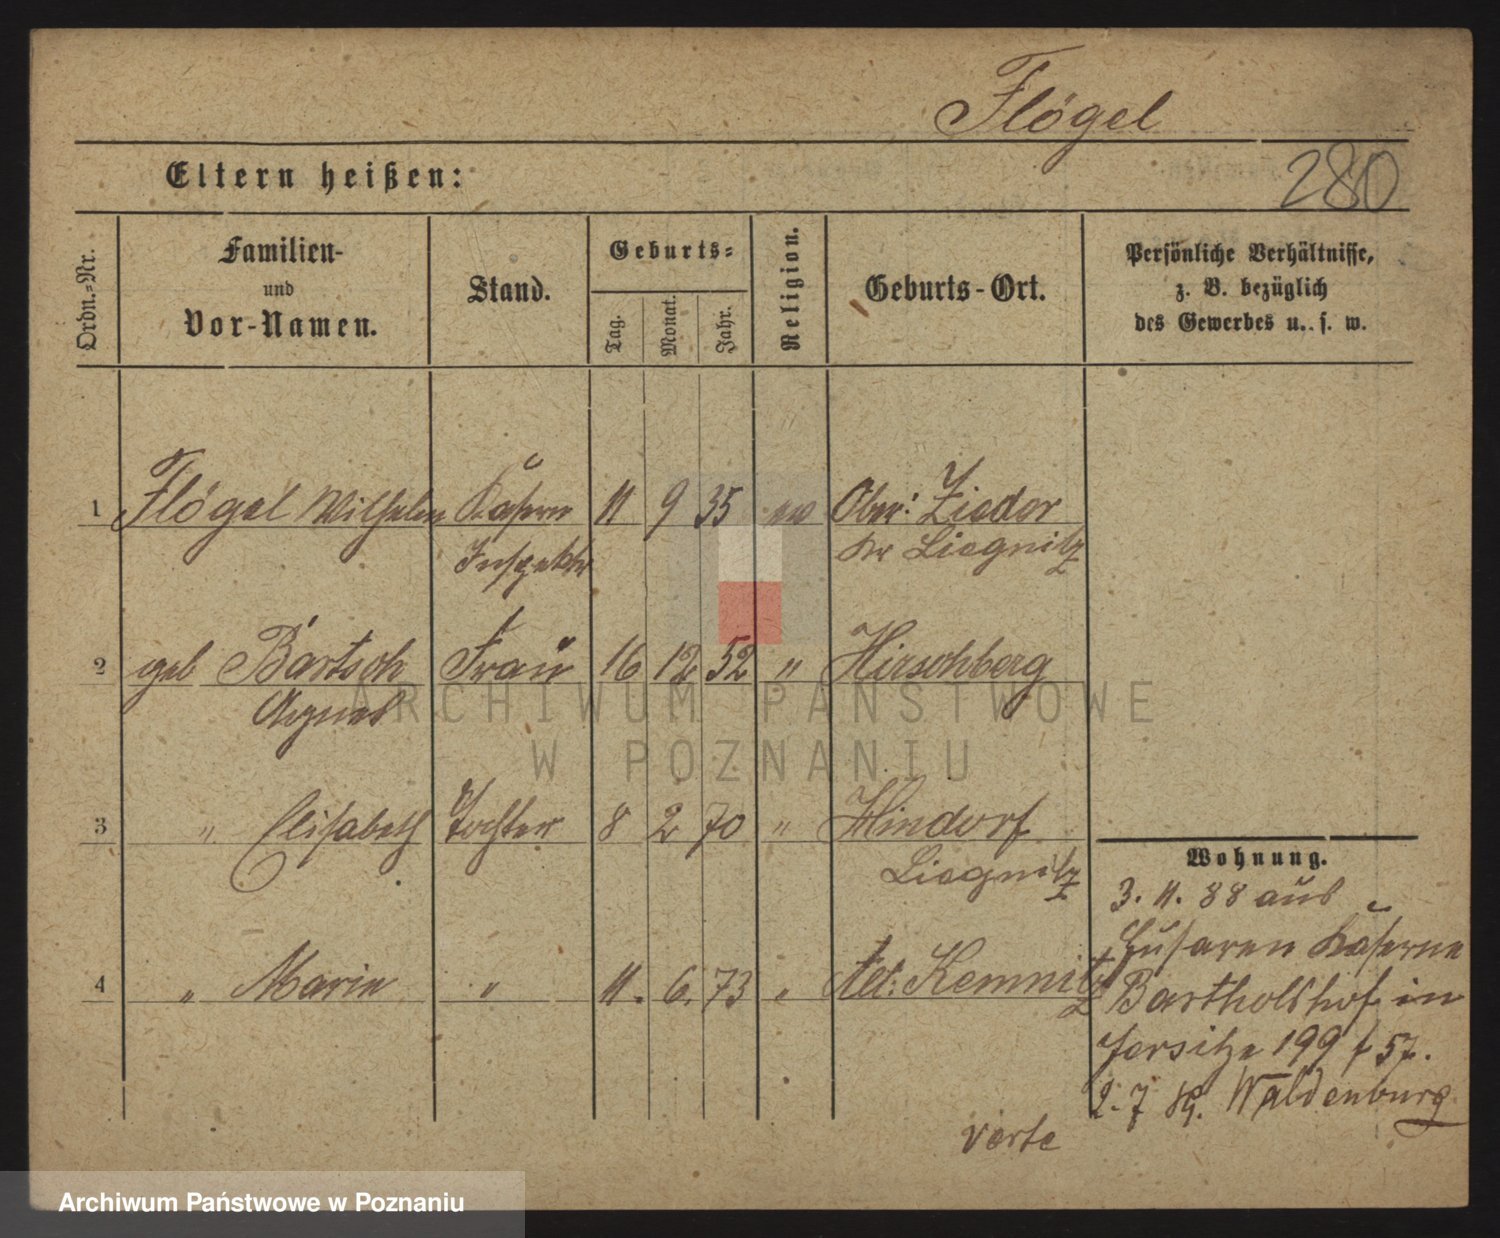 Flögel
280
Eltern heißen:
Ordn.-Nr.
Familien-
und
Vor-Namen.
Stand.
Geburts-
Tag.
Monat.
Jahr.
Religion.
Geburts-Ort.
Persönliche Verhältnisse,
z. B. bezüglich
des Gewerbes u. s. w.
1 Flögel Wilhelm Kasern 11 9 35 ev Ober: Zieder
Inspektor Kr Liegnitz
2 geb Bartsch Frau 16 12 52 " Hirschberg
Agnes
ARCHIWUM PAŃSTWOWE
W POZNANIU
3 " Elisabeth Tochter 8 2 70 " Hindorf
Liegnitz
Wohnung.
3. 11. 88 aus
Husaren Kaserne
4 " Marie " 11. 6. 73 " Alt: Kemnitz
Bartholdshof in
Jersitze 199 f 57.
2. 7 89. Waldenburg
verte
Archiwum Państwowe w Poznaniu